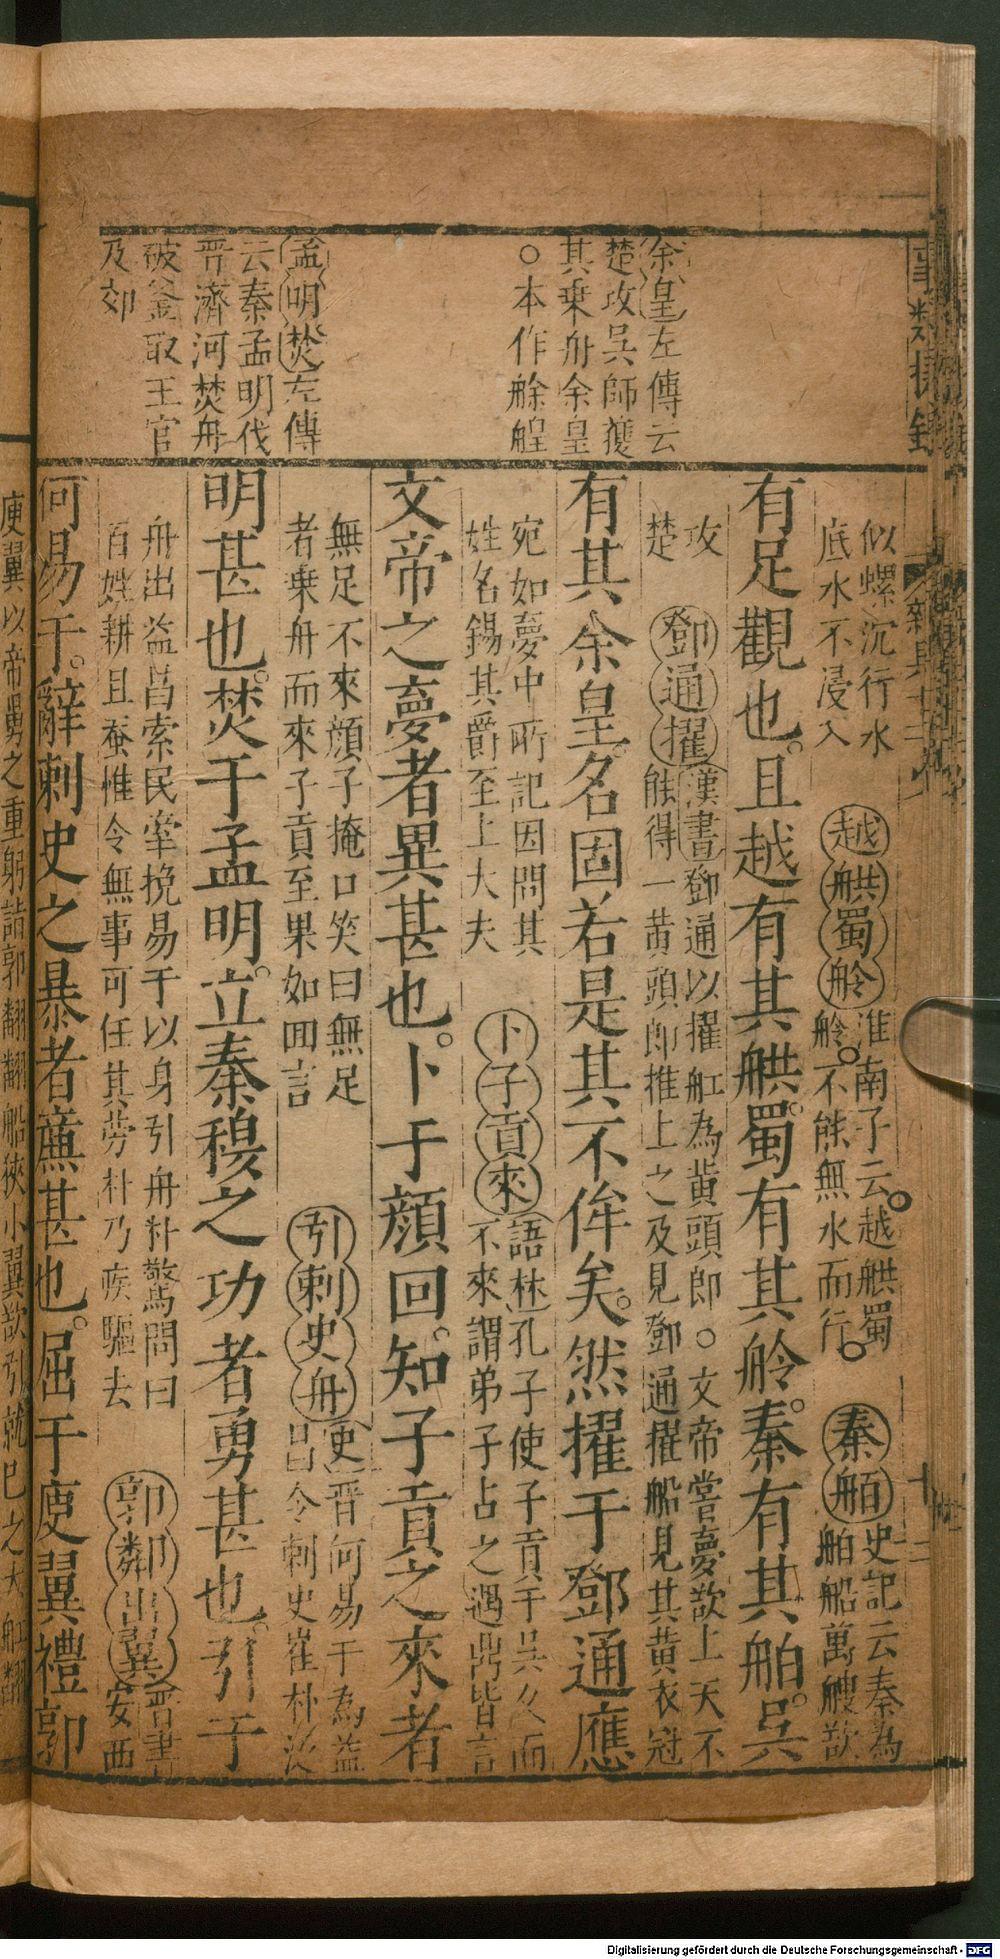 余皇左傳云
楚攻吳師獲
其乗舟余皇
○本作艅艎
孟明焚左傳
云秦孟明伐
晋濟河焚舟
破釜取王官
及郊
似螺沉行水
底水不浸入
越舼蜀舲淮南子云越舼蜀
舲不能無水而行
秦舶史記云秦為
舶船萬艘欲
有足觀也且越有其舼蜀有其舲秦有其舶吳
攻
楚
鄧通擢漢書鄧通以擢舡為黃頭郎○文帝嘗夢欲上天不
能得一黃頭郎推上之及見鄧通擢船見其黃衣冠
有其余皇名固若是其不侔矣然擢于鄧通應
宛如夢中所記因問其
姓名錫其爵至上大夫
卜子貢來語林孔子使子貢于吳久而
不來謂弟子占之遇鼎皆言
文帝之夢者異甚也卜于顏回知子貢之來者
無足不來顏子掩口笑曰無足
者乗舟而來子貢至果如囬言
引刺史舟吏晋何易于為益
昌令刺史崔朴汎
明甚也焚于孟明立秦穆之功者勇甚也引于
舟出益昌索民牽挽易于以身引舟朴驚問曰
百姓耕且蚕惟令無事可任其劳朴乃疾驅去
郭翻出翼晋書
安西
何易于辭刺史之暴者薫甚也屈于庾翼禮郭
庾翼以帝舅之重躬詣郭翻翻船狹小翼欲引就已之大舡翻
Digitalisierung gefördert durch die Deutsche Forschungsgemeinschaft - DFG